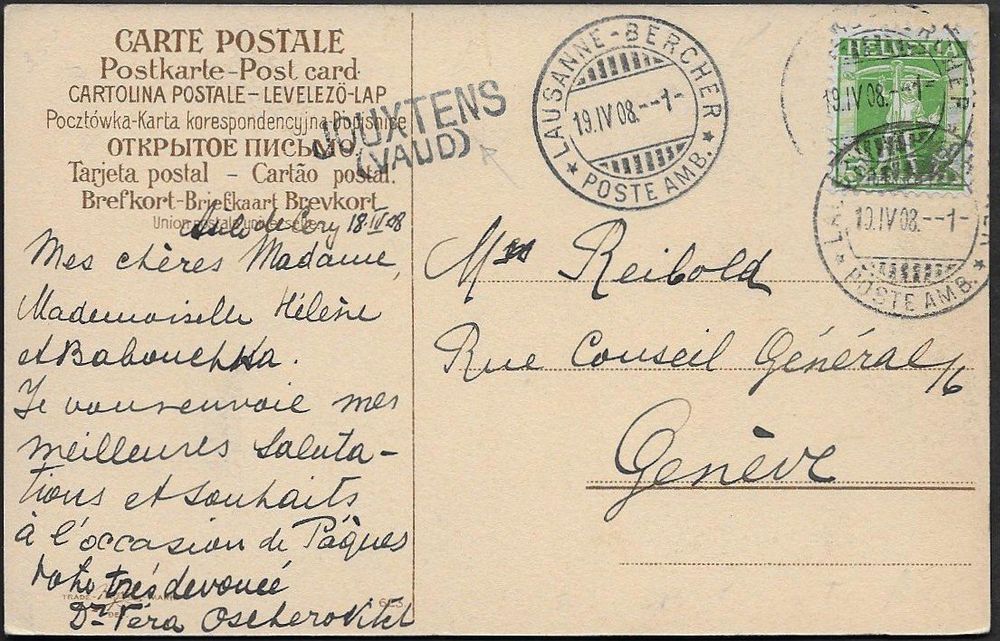 CARTE POSTALE
Postkarte-Post card
CARTOLINA POSTALE-LEVELEZÖ-LAP
Pocztówka-Karta korespondencyjna-Dopisnice
ОТКРЫТОЕ ПИСЬМО
Tarjeta postal - Cartão postal.
Brefkort-Briefkaart Brevkort
Union postale universelle
JOUXTENS
(VAUD)
LAUSANNE-BERCHER
19.IV 08.--1-
★ POSTE AMB. ★
HELVETIA
5
19.IV 08.--1-
19.IV 08.--1-
★ POSTE AMB. ★
de Cery 18 IV 08
Mes chères Madame,
Mademoiselle Hélène
et Babouchka.
Je vous envoie mes
meilleures saluta-
tions et souhaits
à l'occasion de Pâques
très devouée
Dr Vera Oscherovitch
TRADE MARK
Reibold
Rue Conseil Général 16
Genève